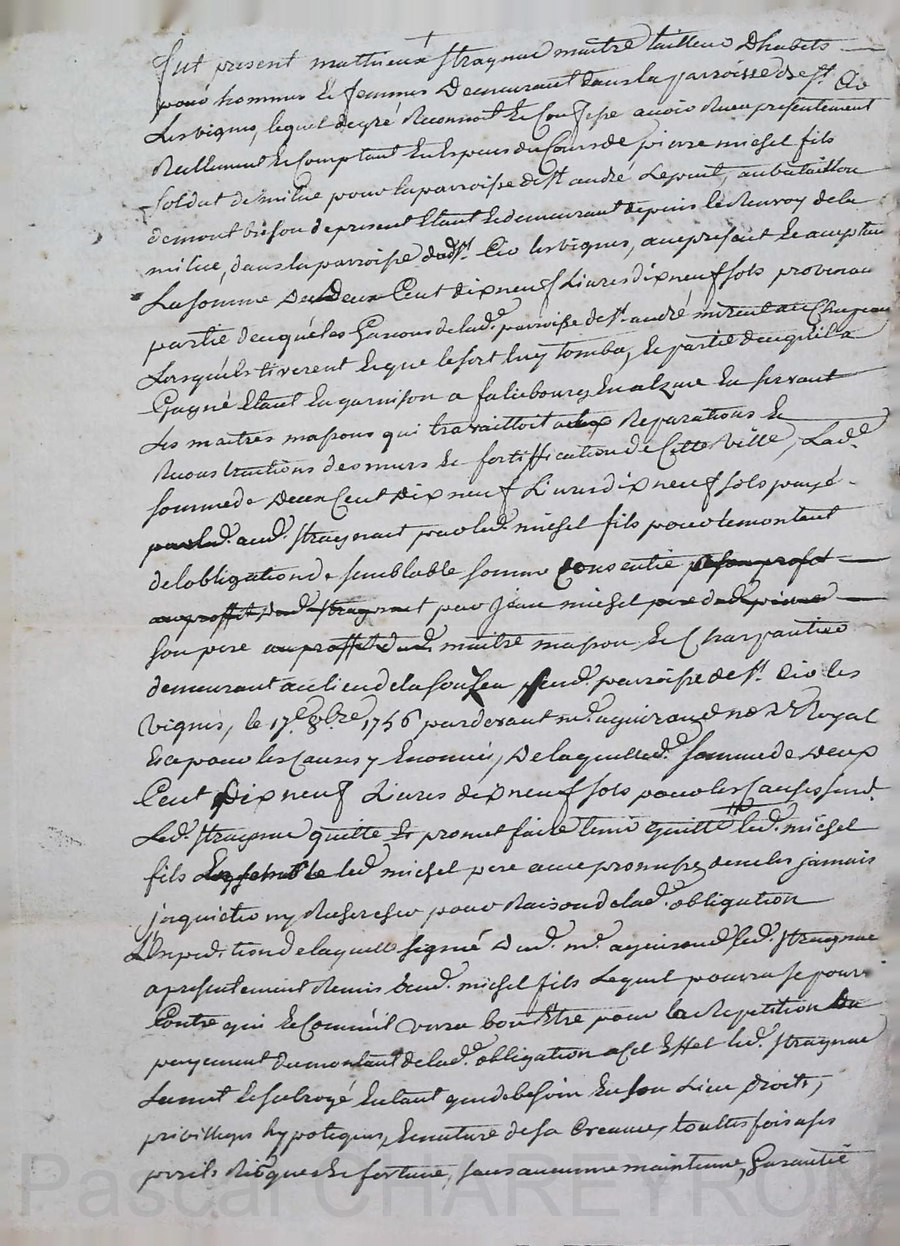 fut present mathieux stragnat maitre tailleur Dhabits
pour hommes et femmes Demeurant dans la parroisse de st. Cio
Lesvignes, lequel de gré Reconnoit et Confesse avoir Reeu presentement
Reellement et Comptant en Especes du Cours de pierre michel fils
soldat de milice pour la parroisse de st andré Lepuit, au bataillon
de montbrison de present Etant et demeurant depuis le Renvoy de la
milice, dans la parroisse dud. st. Cio lesvignes, au present et acceptant
La somme de Deux Cent dixneuf Livres dixneuf sols provenan
partie de ce que les Garcons de lad. parroisse de st. andré mirent au Chapeau
Lorsqu'ils tirerent et que le sort luy tomba, et partie de ce qu'il a
Gagné Etant En garnison a en alzace En servant
Les maitres massons qui travailloit aux Reparations et
Reconstructions des murs et fortiffication de Cette Ville, Lad.
somme de Deux Cent Dixneuf Livres dixneuf sols payé
par led. aud. stragnat par led. michel fils pour le montant
de lobligation de semblable somme Consentie a son proffit
au proffit dud. stragnat par Jean michel pere dud. pierre
son pere au proffit dud. maitre masson et Charpantier
demeurant au lieu de susd. parroisse de st. Cio les
vignes, le 17e. 8bre. 1756 pardevant me. aguiraud nore. Royal
Et a pour les Causes y Enoncées, De laquelle d. somme de Deux
Cent Dixneuf Livres dixneuf sols pour les Causes susd.
Led. stragnat quitte et promet faire tenir quitte led. michel
fils Ensemble led. michel pere avec promesse de ne les jamais
jnquietter ny Rechercher pour Raison de lad. obligation
L'Expedition de laquelle signé dud. me. aguiraud led. stragnat
a presentement Remis aud. michel fils Lequel pourra se pourv
Contre qui et Comme il verra bon Etre pour la Repetition du
payement du montant de lad. obligation a cet Effet led. stragnat
La mit et subrogé En tant que de besoin En son Lieu Droits,
privilleges hypoteques, et nature de sa Creance, touttes fois a ses
perils Risques et fortune, sans aucunne maintenue, Garantie
Pascal CHAREYRON